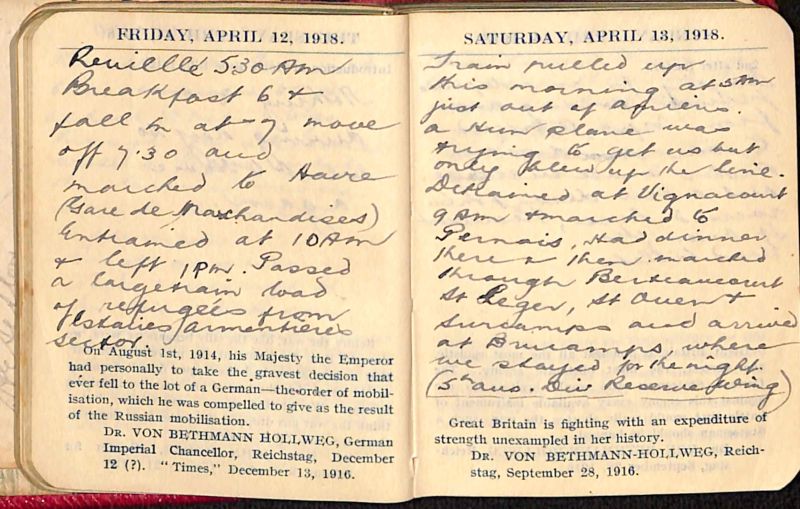 FRIDAY, APRIL 12, 1918.
Reveillé 5.30 AM
Breakfast 6 +
fall in at 7 move
off 7.30 and
marched to Havre
(Gare de Marchandises)
Entrained at 10 AM
+ left 1 PM. Passed
a large train load
of refugees from
Estaires/Armentieres
sector.
On August 1st, 1914, his Majesty the Emperor
had personally to take the gravest decision that
ever fell to the lot of a German—the order of mobil-
isation, which he was compelled to give as the result
of the Russian mobilisation.
DR. VON BETHMANN HOLLWEG, German
Imperial Chancellor, Reichstag, December
12 (?). "Times," December 13, 1916.
SATURDAY, APRIL 13, 1918.
Train pulled up
this morning at 5 AM
just out of Amiens.
a Hun plane was
trying to get us but
only blew up the line.
Detrained at Vignacourt
9 AM + marched to
Pernois, Had dinner
there + then marched
through Berteaucourt
St Leger, St Ouen +
Surcamps and arrived
at Brucamps, where
we stayed for the night.
(5th Aus. Div Reserve Wing)
Great Britain is fighting with an expenditure of
strength unexampled in her history.
DR. VON BETHMANN-HOLLWEG, Reich-
stag, September 28, 1916.